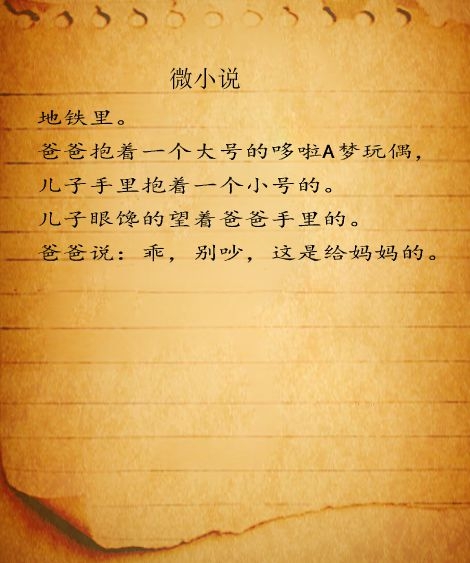 微小说
地铁里。
爸爸抱着一个大号的哆啦A梦玩偶，
儿子手里抱着一个小号的。
儿子眼馋的望着爸爸手里的。
爸爸说：乖，别吵，这是给妈妈的。